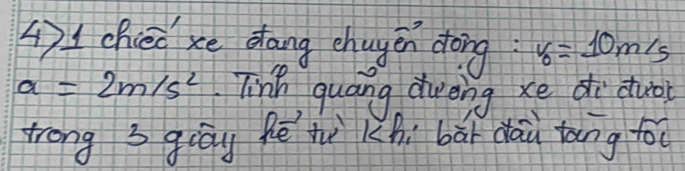 4) 1 chiếc xe đang chuyển động : v₀ = 10m/s
a = 2m/s². Tính quãng đường xe đi được
trong 3 giây kể từ khi bắt đầu tăng tốc